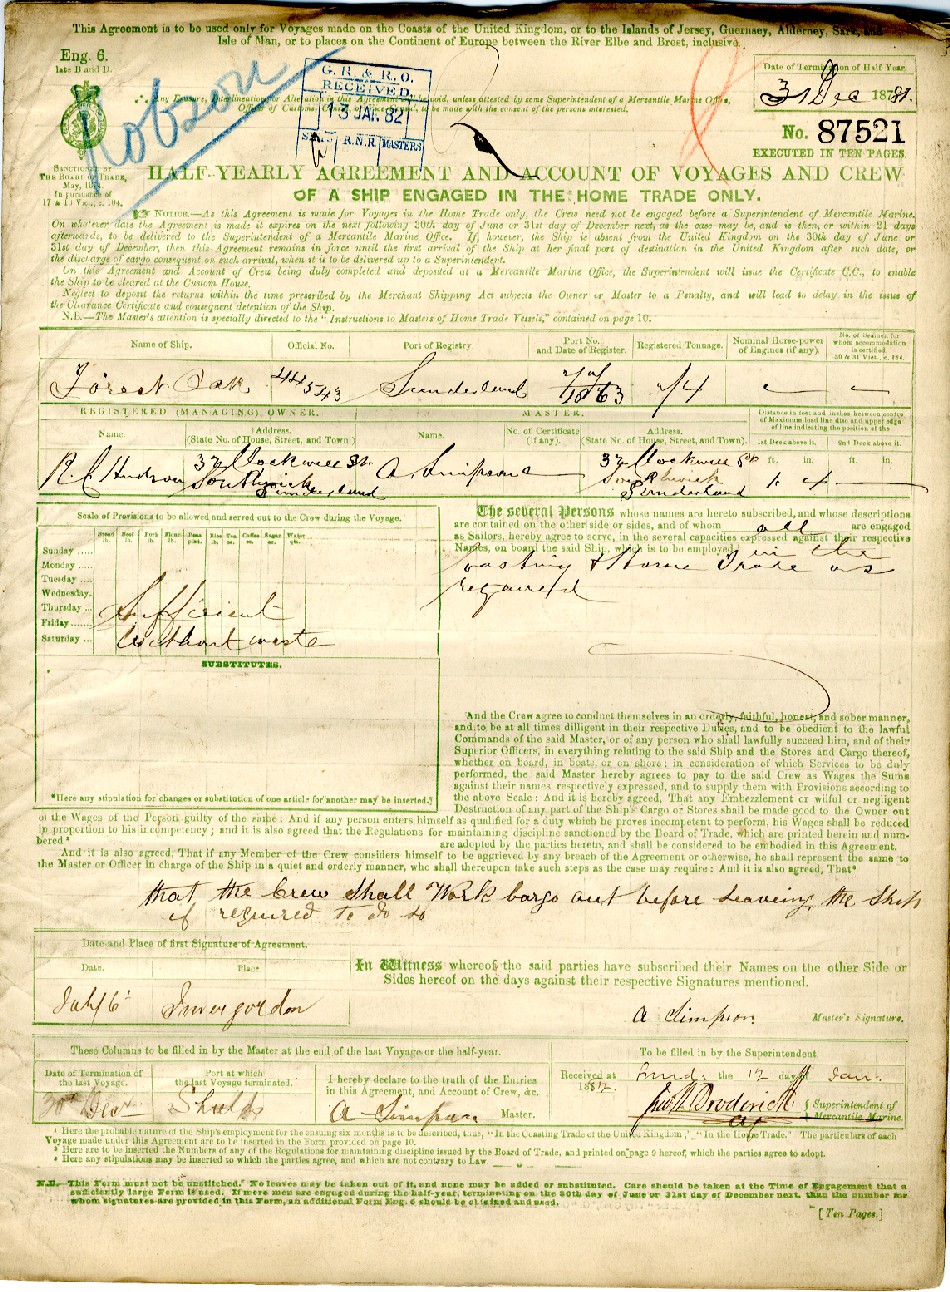 This Agreement is to be used only for Voyages made on the Coasts of the United Kingdom, or to the Islands of Jersey, Guernsey, Alderney, Sark, and
Isle of Man, or to places on the Continent of Europe between the River Elbe and Brest, inclusive.
Eng. 6.
late B and D.
Robson
G. R. & R. O.
RECEIVED.
13 JAN. 82
R.N.R
MASTERS
Date of Termination of Half Year
31 Dec 1881.
∴ Any Erasure, Interlineation or Alteration in this Agreement will be void, unless attested by some Superintendent of a Mercantile Marine Office,
Officer of Customs, with the consent of the persons interested.
No. 87521
EXECUTED IN TEN PAGES.
SANCTIONED BY
THE BOARD OF TRADE,
May, 18
In pursuance of
17 & 18 Vict., c. 104.
HALF-YEARLY AGREEMENT AND ACCOUNT OF VOYAGES AND CREW
OF A SHIP ENGAGED IN THE HOME TRADE ONLY.
NOTICE.—As this Agreement is made for Voyages in the Home Trade only, the Crew need not be engaged before a Superintendent of Mercantile Marine.
On whatever date the Agreement is made it expires on the next following 30th day of June or 31st day of December next, as the case may be, and is then, or within 21 days
afterwards, to be delivered to the Superintendent of a Mercantile Marine Office. If, however, the Ship is absent from the United Kingdom on the 30th day of June or
31st day of December, then this Agreement remains in force until the first arrival of the Ship at her final port of destination in the United Kingdom after such date, or
the discharge of cargo consequent on such arrival, when it is to be delivered up to a Superintendent.
On this Agreement and Account of Crew being duly completed and deposited at a Mercantile Marine Office, the Superintendent will issue the Certificate C.C., to enable
the Ship to be cleared at the Custom House.
Neglect to deposit the returns within the time prescribed by the Merchant Shipping Act subjects the Owner or Master to a Penalty, and will lead to delay in the issue of
the Clearance Certificate and consequent detention of the Ship.
N.B.—The Master's attention is specially directed to the "Instructions to Masters of Home Trade Vessels," contained on page 10.
Name of Ship. Official No. Port of Registry. Port No. and Date of Register. Registered Tonnage. Nominal Horse-power of Engines (if any). No. of Seamen for whom accommodation is certified. 30 & 31 Vict., c. 124.
Forest Oak 44543 Sunderland 1863 74
REGISTERED (MANAGING) OWNER. MASTER. Distance in feet and inches between centre of Maximum load line disc and upper edge of line indicating the position of the
Name. Address. (State No. of House, Street, and Town) Name. No. of Certificate (if any). Address. (State No. of House, Street, and Town). 1st Deck above it. 2nd Deck above it.
ft. in. ft. in.
37 Clockwell St. A Simpson 37 Clockwell St
R. Hudson Southwick Southwick 1 4
Sunderland Sunderland
Scale of Provisions to be allowed and served out to the Crew during the Voyage.
Sunday
Monday
Tuesday
Wednesday
Thursday
Friday
Saturday
Sufficient
Without waste
SUBSTITUTES.
*Here any stipulation for changes or substitution of one article for another may be inserted.
The several Persons whose names are hereto subscribed, and whose descriptions
are contained on the other side or sides, and of whom all are engaged
as Sailors, hereby agree to serve, in the several capacities expressed against their respective
Names, on board the said Ship, which is to be employed in the
Coasting & Home Trade as
required
And the Crew agree to conduct themselves in an orderly, faithful, honest, and sober manner,
and to be at all times dilligent in their respective Duties, and to be obedient to the lawful
Commands of the said Master, or of any person who shall lawfully succeed him, and of their
Superior Officers, in everything relating to the said Ship and the Stores and Cargo thereof,
whether on board, in boats, or on shore; in consideration of which Services to be duly
performed, the said Master hereby agrees to pay to the said Crew as Wages the Sums
against their names respectively expressed, and to supply them with Provisions according to
the above Scale: And it is hereby agreed, That any Embezzlement or wilful or negligent
Destruction of any part of the Ship's Cargo or Stores shall be made good to the Owner out
of the Wages of the Person guilty of the same: And if any person enters himself as qualified for a duty which he proves incompetent to perform, his Wages shall be reduced
in proportion to his incompetency; and it is also agreed that the Regulations for maintaining discipline sanctioned by the Board of Trade, which are printed herein and num-
bered are adopted by the parties hereto, and shall be considered to be embodied in this Agreement.
And it is also agreed, That if any Member of the Crew considers himself to be aggrieved by any breach of the Agreement or otherwise, he shall represent the same to
the Master or Officer in charge of the Ship in a quiet and orderly manner, who shall thereupon take such steps as the case may require: And it is also agreed, That
that the Crew Shall Work Cargo out before Leaveing the Ship
if required to do so
Date and Place of first Signature of Agreement.
Date. Place
July 6 Invergordon
In Witness whereof the said parties have subscribed their Names on the other Side or
Sides hereof on the days against their respective Signatures mentioned.
A Simpson Master's Signature.
These Columns to be filled in by the Master at the end of the last Voyage or the half-year.
Date of Termination of the last Voyage. Port at which the last Voyage terminated.
30th Dec Shields
I hereby declare to the truth of the Entries
in this Agreement, and Account of Crew, &c.
A Simpson Master.
To be filled in by the Superintendent
Received at the 12 day of Jan.
1882
Broderick Superintendent of Mercantile Marine.
Here the probable nature of the Ship's employment for the ensuing six months is to be described, thus, "In the Coasting Trade of the United Kingdom," "In the Home Trade." The particulars of each
Voyage made under this Agreement are to be inserted in the Form provided on page 10.
Here are to be inserted the Numbers of any of the Regulations for maintaining discipline issued by the Board of Trade, and printed on page 9 hereof, which the parties agree to adopt.
Here any stipulations may be inserted to which the parties agree, and which are not contrary to Law
N.B. This Form must not be unstitched. No leaves may be taken out of it, and none may be added or substituted. Care should be taken at the Time of Engagement that a
sufficiently large Form is used. If more men are engaged during the half-year, terminating on the 30th day of June or 31st day of December next, than the number for
whom signatures are provided in this Form, an additional Form Eng. 6 should be obtained and used.
[Ten Pages.]